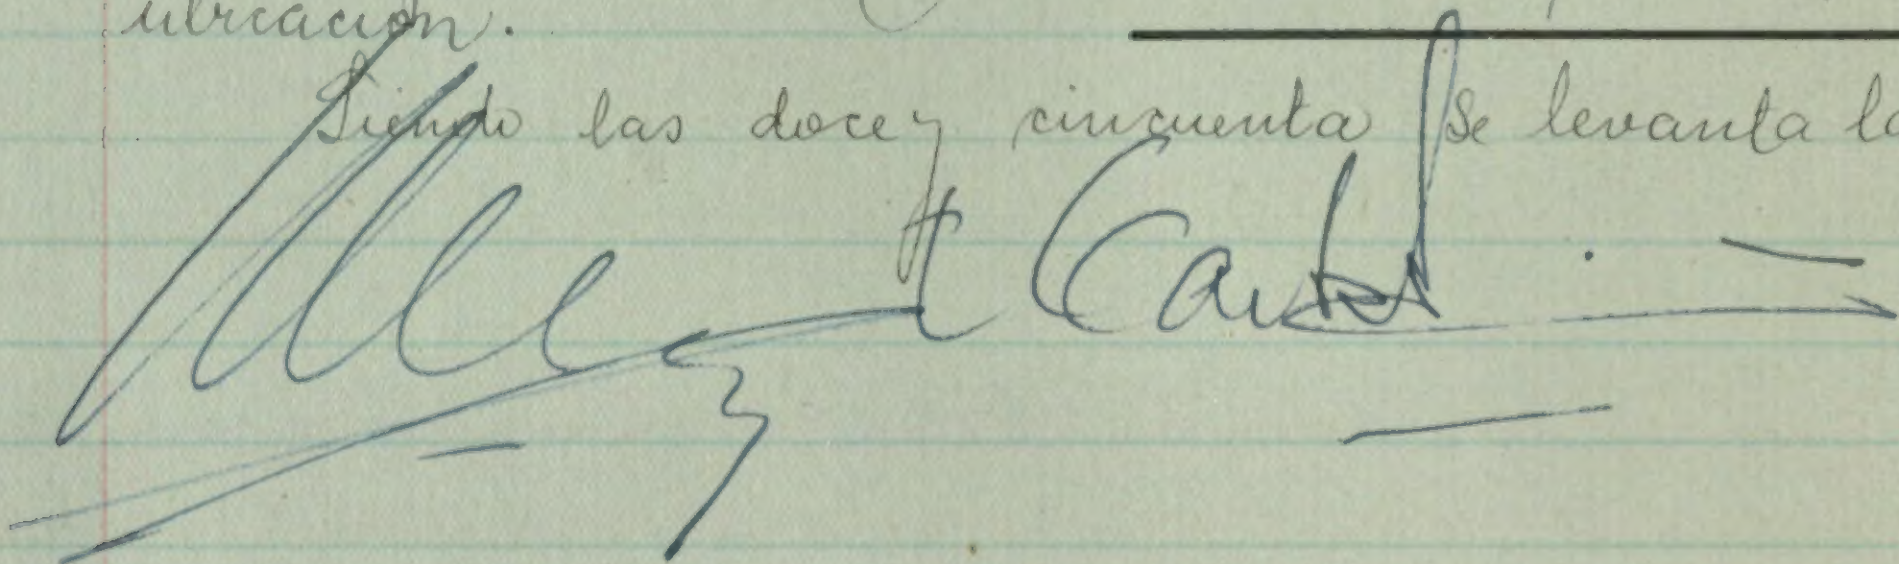 ubicación.
Siendo las doce y cincuenta se levanta la